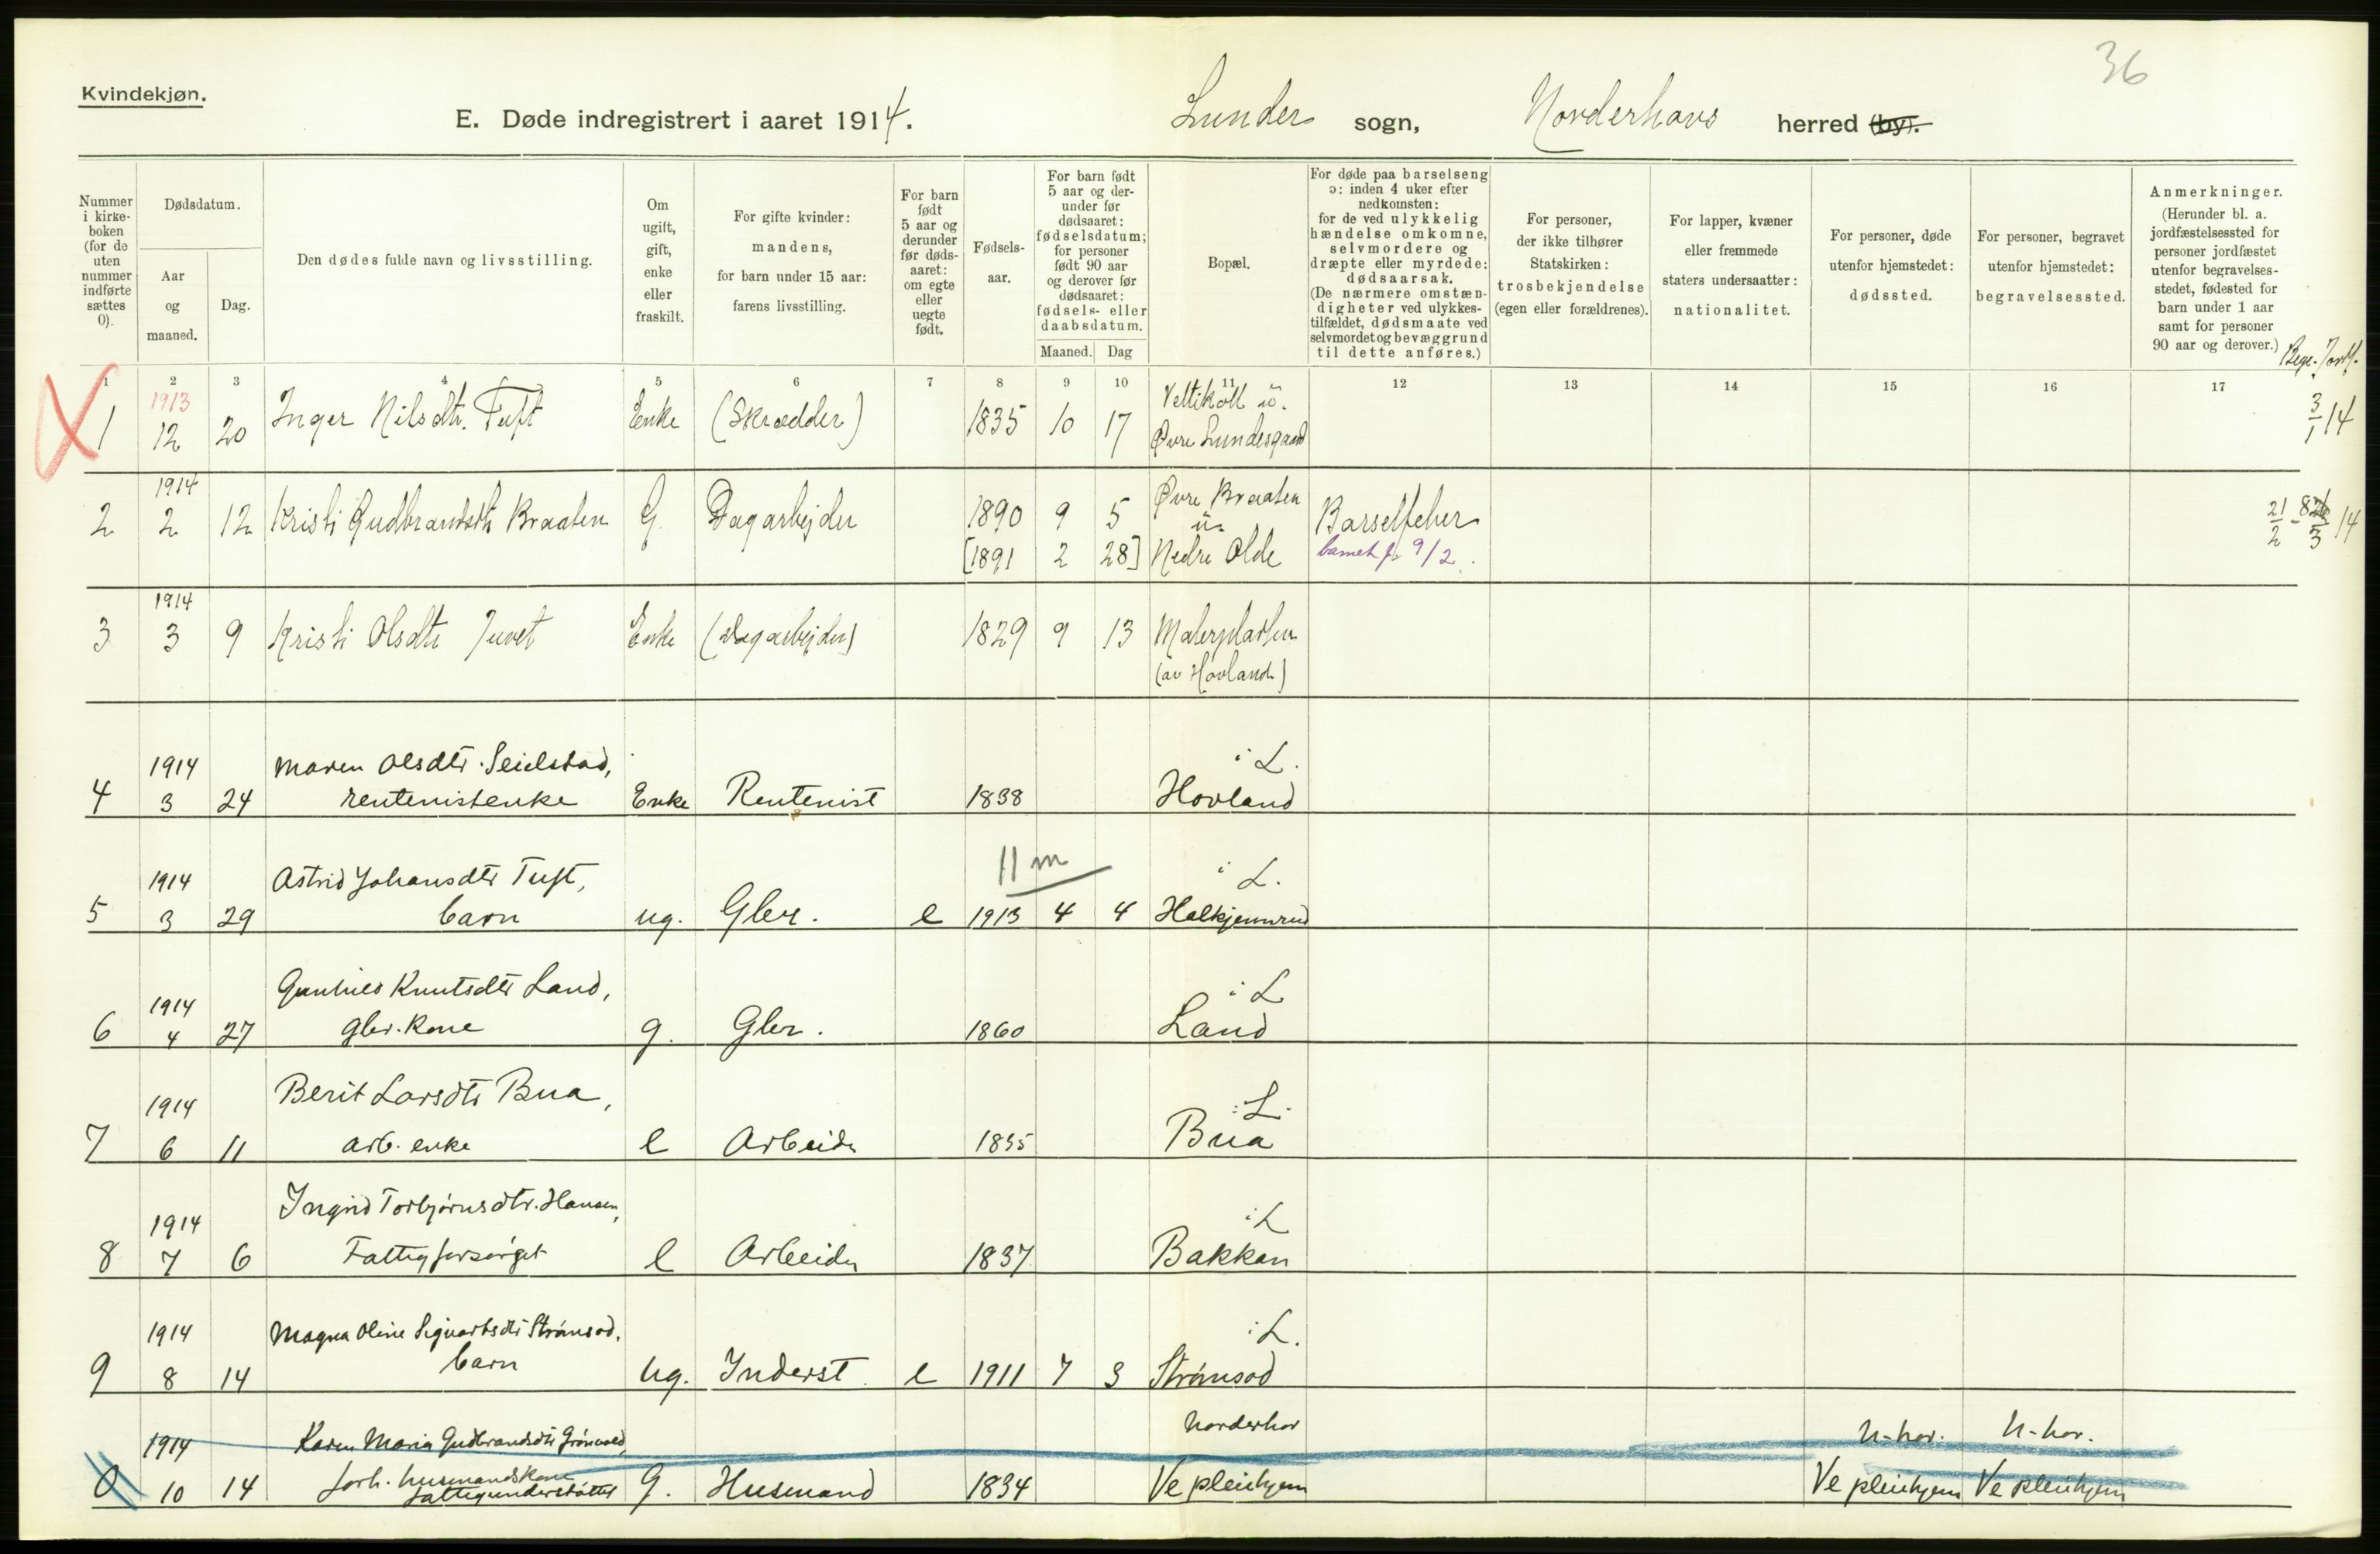 36
Kvindekjøn.
E. Døde indregistrert i aaret 1914. Lunder sogn, Norderhovs herred (by).
Nummer i kirkeboken (for de uten nummer indførte sættes 0).
Dødsdatum.
Aar og maaned.
Dag.
Den dødes fulde navn og livsstilling.
Om ugift, gift, enke eller fraskilt.
For gifte kvinder: mandens, for barn under 15 aar: farens livsstilling.
For barn født 5 aar og derunder før dødsaaret: om egte eller uegte født.
Fødselsaar.
For barn født 5 aar og derunder før dødsaaret: fødselsdatum; for personer født 90 aar og derover før dødsaaret: fødsels- eller daabsdatum.
Maaned. Dag
Bopæl.
For døde paa barselseng ɔ: inden 4 uker efter nedkomsten: for de ved ulykkelig hændelse omkomne, selvmordere og dræpte eller myrdede: dødsaarsak. (De nærmere omstændigheter ved ulykkestilfældet, dødsmaate ved selvmordet og bevæggrund til dette anføres.)
For personer, der ikke tilhører Statskirken: trosbekjendelse (egen eller forældrenes).
For lapper, kvæner eller fremmede staters undersaatter: nationalitet.
For personer, døde utenfor hjemstedet: dødssted.
For personer, begravet utenfor hjemstedet: begravelsessted.
Anmerkninger. (Herunder bl. a. jordfæstelsessted for personer jordfæstet utenfor begravelsesstedet, fødested for barn under 1 aar samt for personer 90 aar og derover.)
Begr. Jordf.
1 2 3 4 5 6 7 8 9 10 11 12 13 14 15 16 17
1913 Veltikoll u.
1 12 20 Inger Nilsdtr. Tuft Enke (Skrædder) 1835 10 17 Øvre Lundesgaard 3/1 14
1914 Øvre Braaten u.
2 2 12 Kristi Gudbrandsdtr Braaten G Dagarbejder 1890 9 5 Barselfeber 21/2 - 3 14
[1891 2 28] Nedre Olde barnet f. 9/2.
1914
3 3 9 Kristi Olsdtr Juvet Enke (Dagarbejder) 1829 9 13 Malerplassen
(av Hovland)
1914 Maren Olsdtr. Seielstad, i L.
4 3 24 rentenistenke Enke Rentenist 1838 Hovland
11 m
1914 Astrid Johansdtr Tuft, i L.
5 3 29 barn ug. Gbr. e 1913 4 4 Halkjennrud
1914 Gunhild Knutsdtr Land, i L
6 4 27 gbr. kone g. Gbr. 1860 Land
1914 Berit Larsdtr Bua, i L.
7 6 11 arb. enke e Arbeider 1835 Bua
1914 Ingrid Torbjørnsdtr. Hansen, i L
8 7 6 Fattigforsørget e Arbeider 1837 Bakken
1914 Magna Oline Sigvartsdtr Strømsod, i L.
9 8 14 barn ug. Inderst e 1911 7 3 Strømsod
1914 Karen Maria Gudbrandsdtr Grønvold, Norderhov N-hov. N-hov.
0 10 14 forh. husmandskone G. Husmand 1834 Ve pleiehjem Ve pleiehjem Ve pleiehjem
fattigunderstøttet